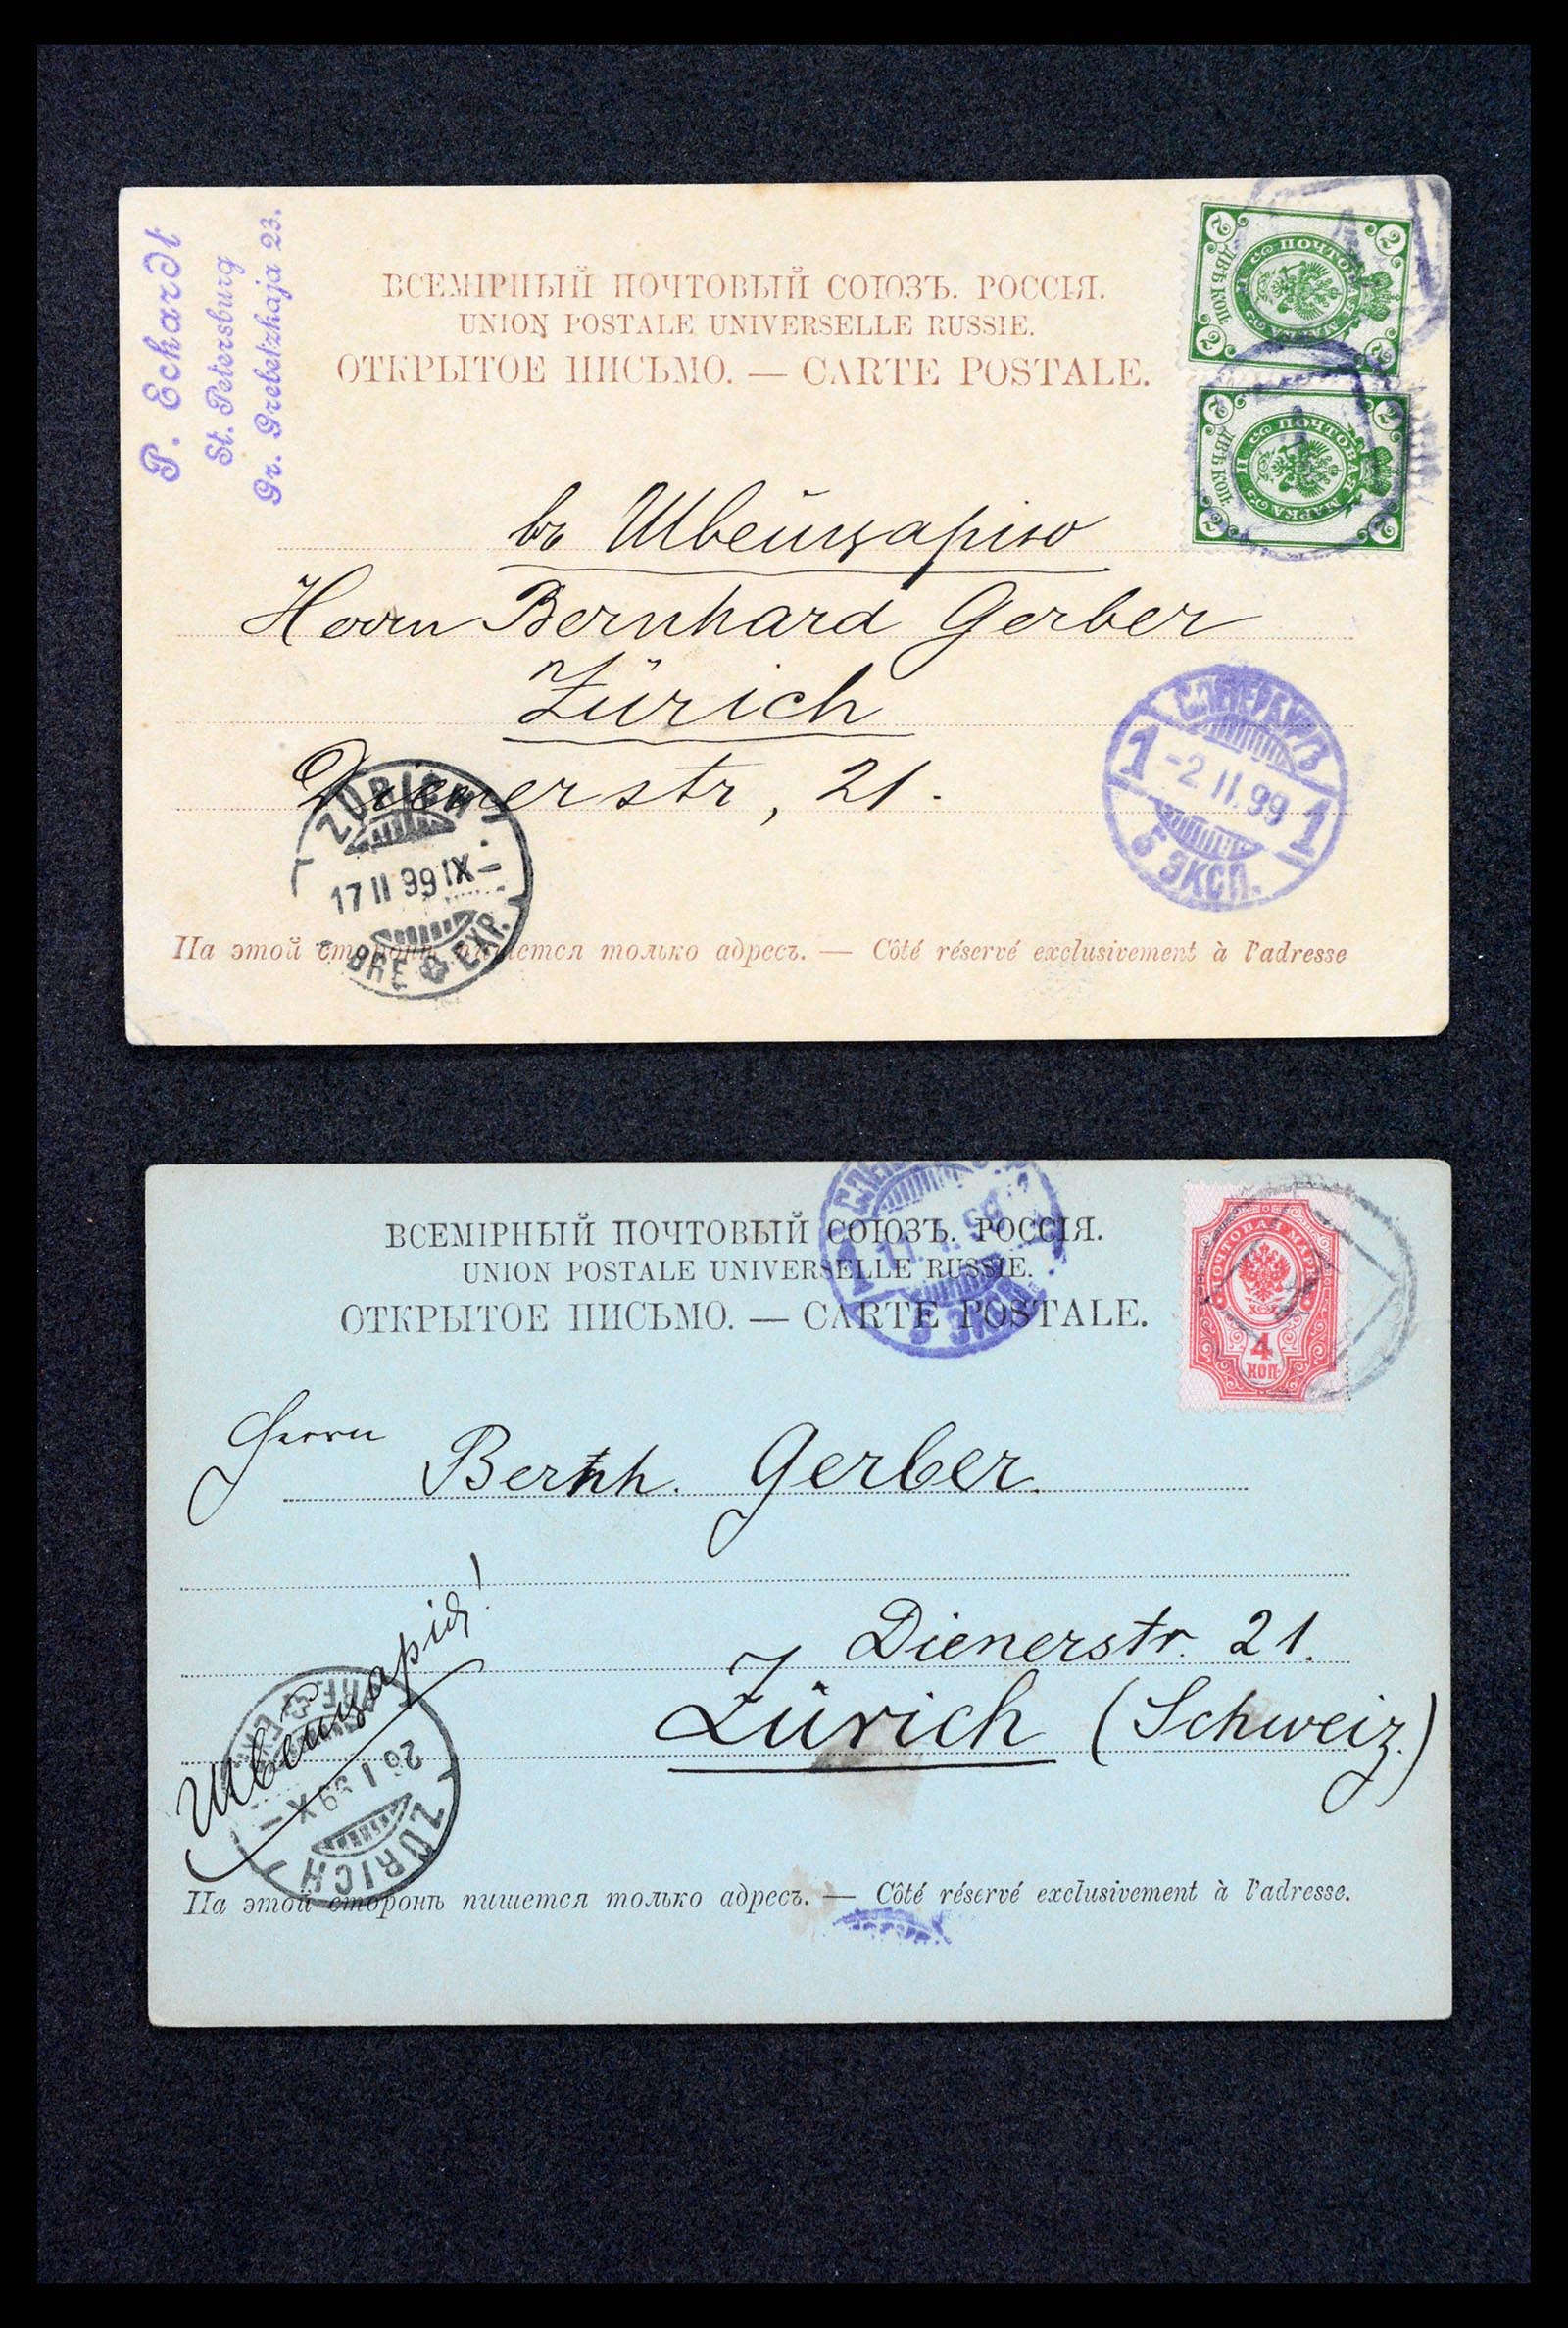 P. Eckardt
St. Petersburg
Gr. Grebetzkaja 23.
ВСЕМІРНЫЙ ПОЧТОВЫЙ СОЮЗЪ. РОССІЯ.
UNION POSTALE UNIVERSELLE RUSSIE.
ОТКРЫТОЕ ПИСЬМО. — CARTE POSTALE.
2 2
ПОЧТОВАЯ МАРКА
ДВѢ КОП.
2 2
2 2
ПОЧТОВАЯ МАРКА
ДВѢ КОП.
2 2
въ Швейцарію
Herrn Bernhard Gerber
Zürich
Dienerstr, 21.
С.ПЕТЕРБУРГЪ
1 -2 II.99 1
5 ЭКСП.
ZÜRICH
17 II 99 IX -
BRF. EXP.
На этой сторонѣ пишется только адресъ. — Côté réservé exclusivement à l'adresse
ВСЕМІРНЫЙ ПОЧТОВЫЙ СОЮЗЪ. РОССІЯ.
UNION POSTALE UNIVERSELLE RUSSIE.
ОТКРЫТОЕ ПИСЬМО. — CARTE POSTALE.
1
ЭКСП.
ПОЧТОВАЯ МАРКА
4
КОП.
Herrn
Bernh. Gerber.
Dienerstr. 21.
Zürich (Schweiz.)
Швейцарія!
ZÜRICH
I 99 X -
На этой сторонѣ пишется только адресъ. — Côté réservé exclusivement à l'adresse.